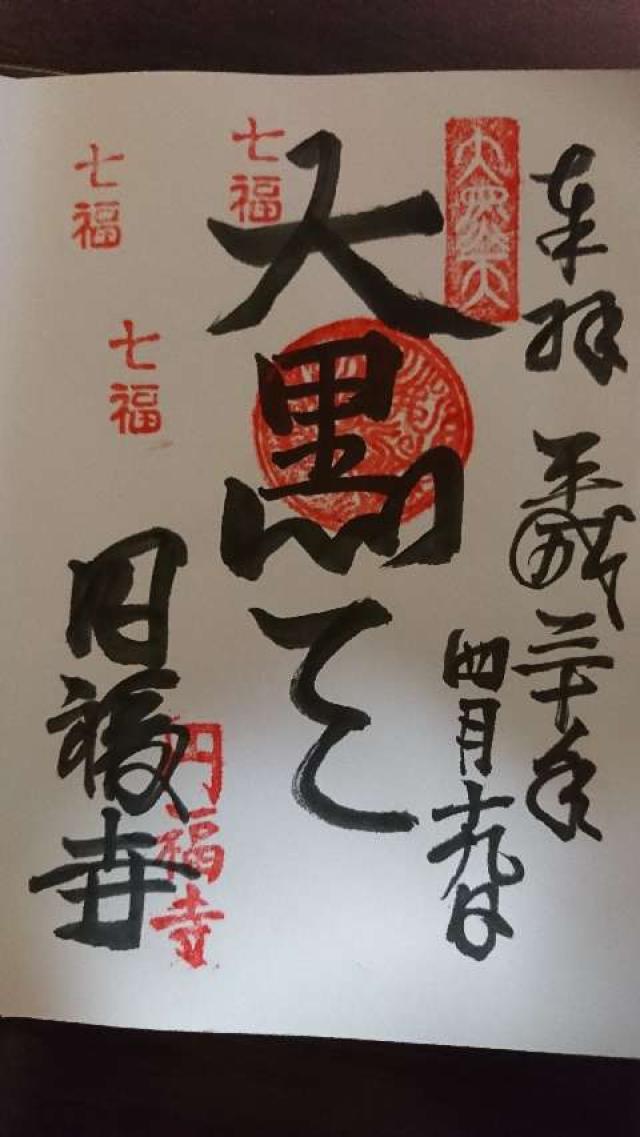 奉拝
平成三十年
四月十九日
大黒天
円福寺
七福
七福
七福
円福寺